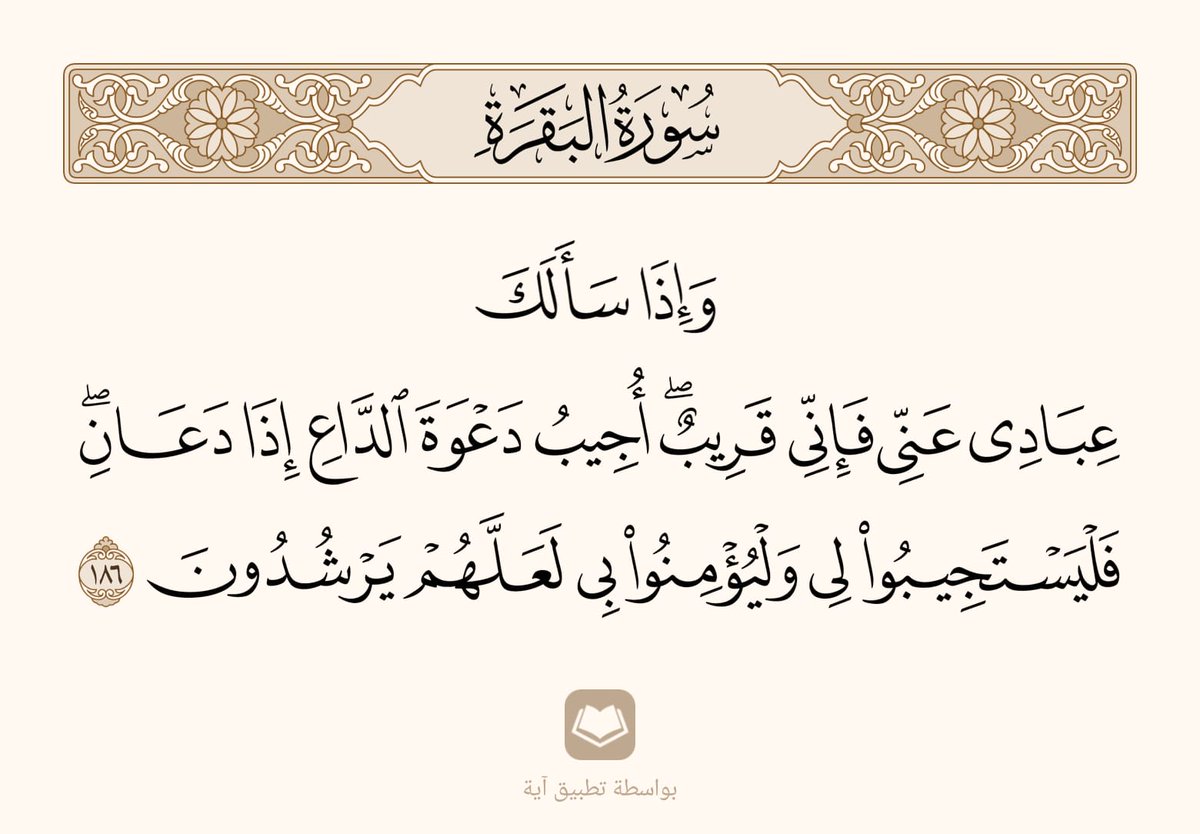 سُورَةُ البَقَرَةِ
وَإِذَا سَأَلَكَ
عِبَادِى عَنِّى فَإِنِّى قَرِيبٌۖ أُجِيبُ دَعۡوَةَ ٱلدَّاعِ إِذَا دَعَانِۖ
فَلۡيَسۡتَجِيبُواْ لِى وَلۡيُؤۡمِنُواْ بِى لَعَلَّهُمۡ يَرۡشُدُونَ ١٨٦
بواسطة تطبيق آية